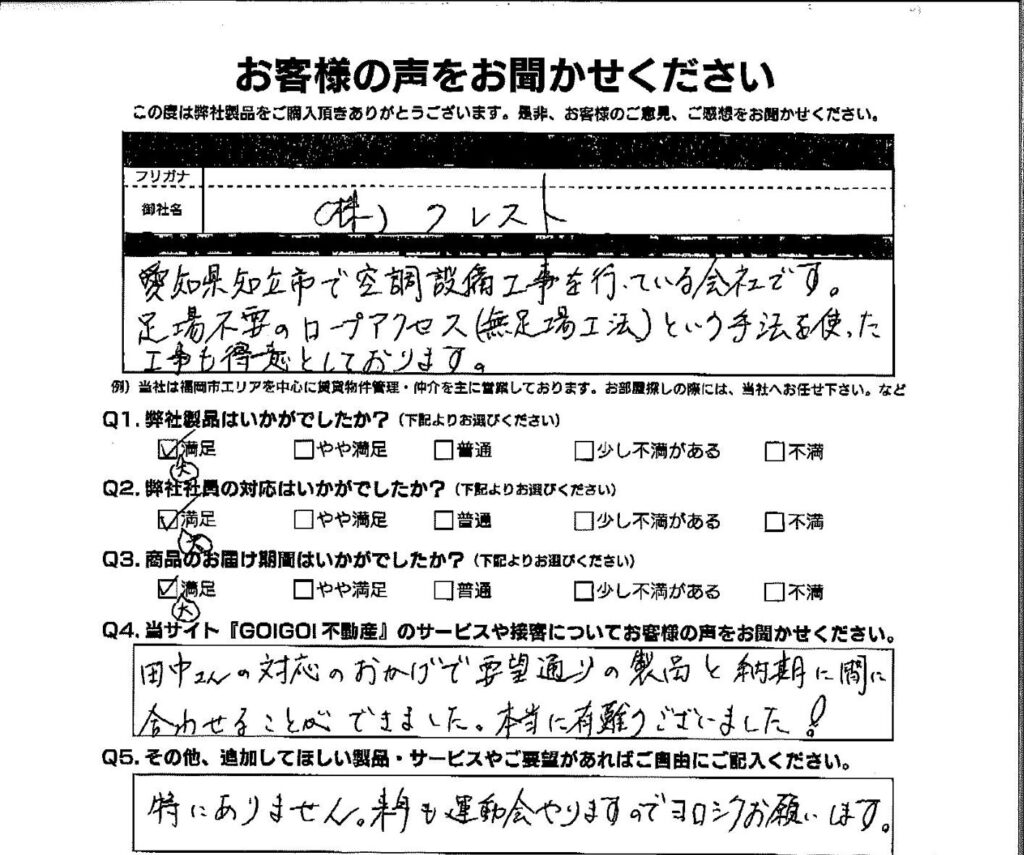 お客様の声をお聞かせください
この度は弊社製品をご購入頂きありがとうございます。是非、お客様のご意見、ご感想をお聞かせください。
フリガナ
御社名 (株) クレスト
愛知県知立市で空調設備工事を行っている会社です。
足場不要のロープアクセス(無足場工法)という手法を使った
工事も得意としております。
例）当社は福岡市エリアを中心に賃貸物件管理・仲介を主に営業しております。お部屋探しの際には、当社へお任せ下さい。など
Q1. 弊社製品はいかがでしたか？（下記よりお選びください）
☑満足 □やや満足 □普通 □少し不満がある □不満
大
Q2. 弊社社員の対応はいかがでしたか？（下記よりお選びください）
☑満足 □やや満足 □普通 □少し不満がある □不満
大
Q3. 商品のお届け期間はいかがでしたか？（下記よりお選びください）
☑満足 □やや満足 □普通 □少し不満がある □不満
大
Q4. 当サイト『GO!GO!不動産』のサービスや接客についてお客様の声をお聞かせください。
田中さんの対応のおかげで要望通りの製品と納期に間に
合わせることができました。本当に有難うございました!
Q5. その他、追加してほしい製品・サービスやご要望があればご自由にご記入ください。
特にありません。来年も運動会やりますのでヨロシクお願いします。